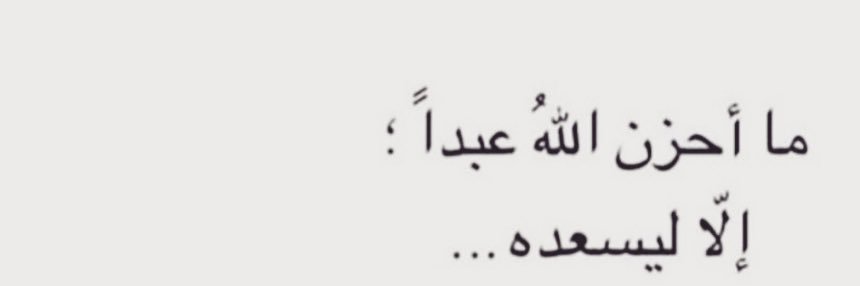 ما أحزن اللهُ عبداً ؛
إلّا ليسعده ...